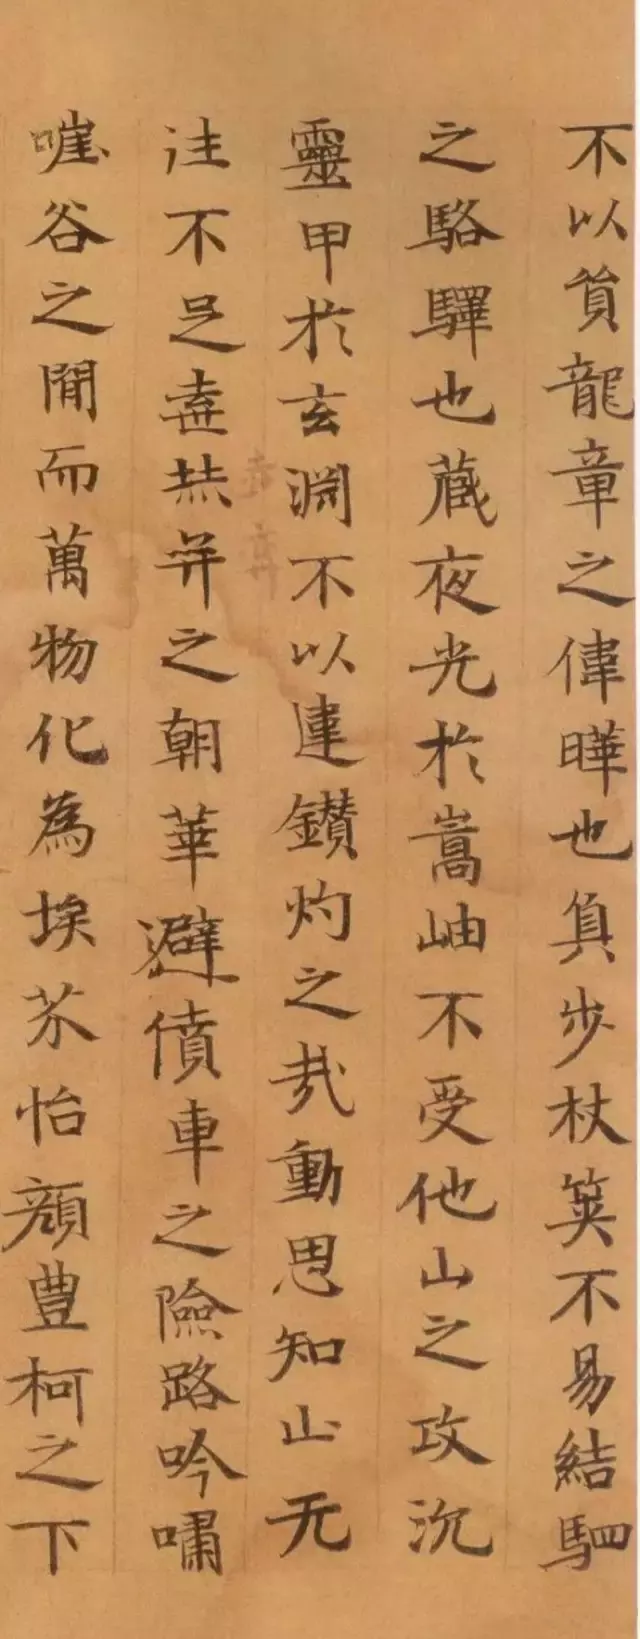 不以貿龍章之偉曄也負步杖筴不易結駟
之駱驛也藏夜光於嵩岫不受他山之攻沉
靈甲於玄淵不以違鑽灼之烖動思知止无
往不足棄赫弈之朝華避僨車之險路吟嘯
嘊谷之閒而萬物化為埃芥怡顏豊柯之下